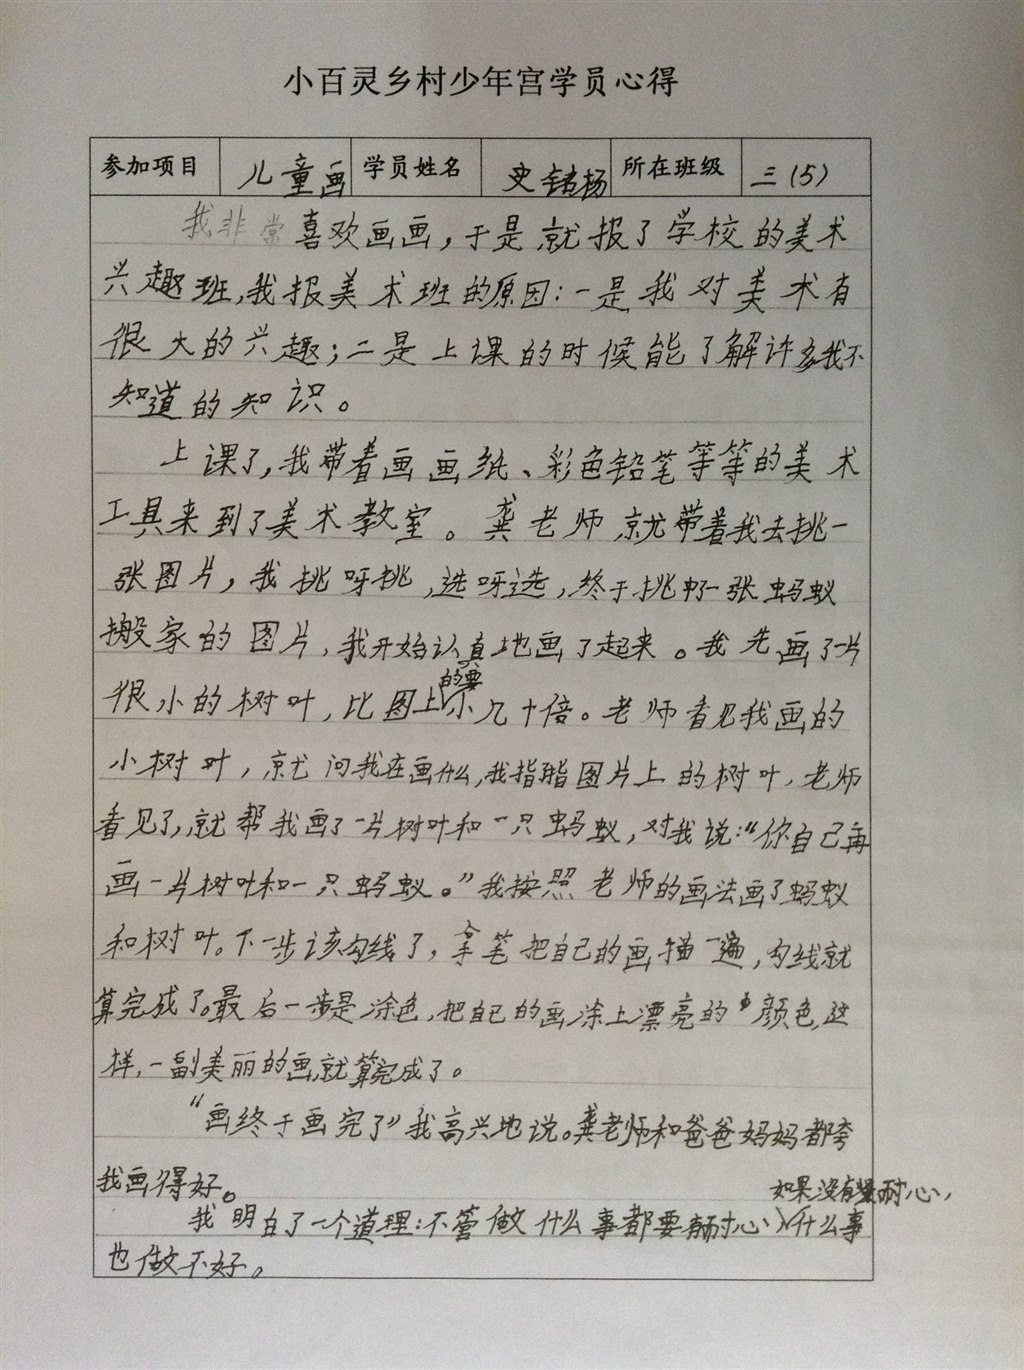 小百灵乡村少年宫学员心得
参加项目 儿童画 学员姓名 史铭杨 所在班级 三(5)
我非常喜欢画画，于是就报了学校的美术
兴趣班，我报美术班的原因：一是我对美术有
很大的兴趣；二是上课的时候能了解许多我不
知道的知识。
上课了，我带着画画纸、彩色铅笔等等的美术
工具来到了美术教室。龚老师就带着我去挑一
张图片，我挑呀挑，选呀选，终于挑中了一张蚂蚁
搬家的图片，我开始认真地画了起来。我先画了一片
很小的树叶，比图上的要小几十倍。老师看见我画的
小树叶，就问我在画什么，我指指图片上的树叶，老师
看见了，就帮我画了一片树叶和一只蚂蚁，对我说：“你自己再
画一片树叶和一只蚂蚁。”我按照老师的画法画了蚂蚁
和树叶。下一步该勾线了，拿笔把自己的画描一遍，勾线就
算完成了。最后一步是涂色，把自己的画涂上漂亮的颜色，这
样，一副美丽的画就算完成了。
“画终于画完了”我高兴地说。龚老师和爸爸妈妈都夸
我画得好。
我明白了一个道理：不管做什么事都要有耐心，如果没有耐心，什么事
也做不好。